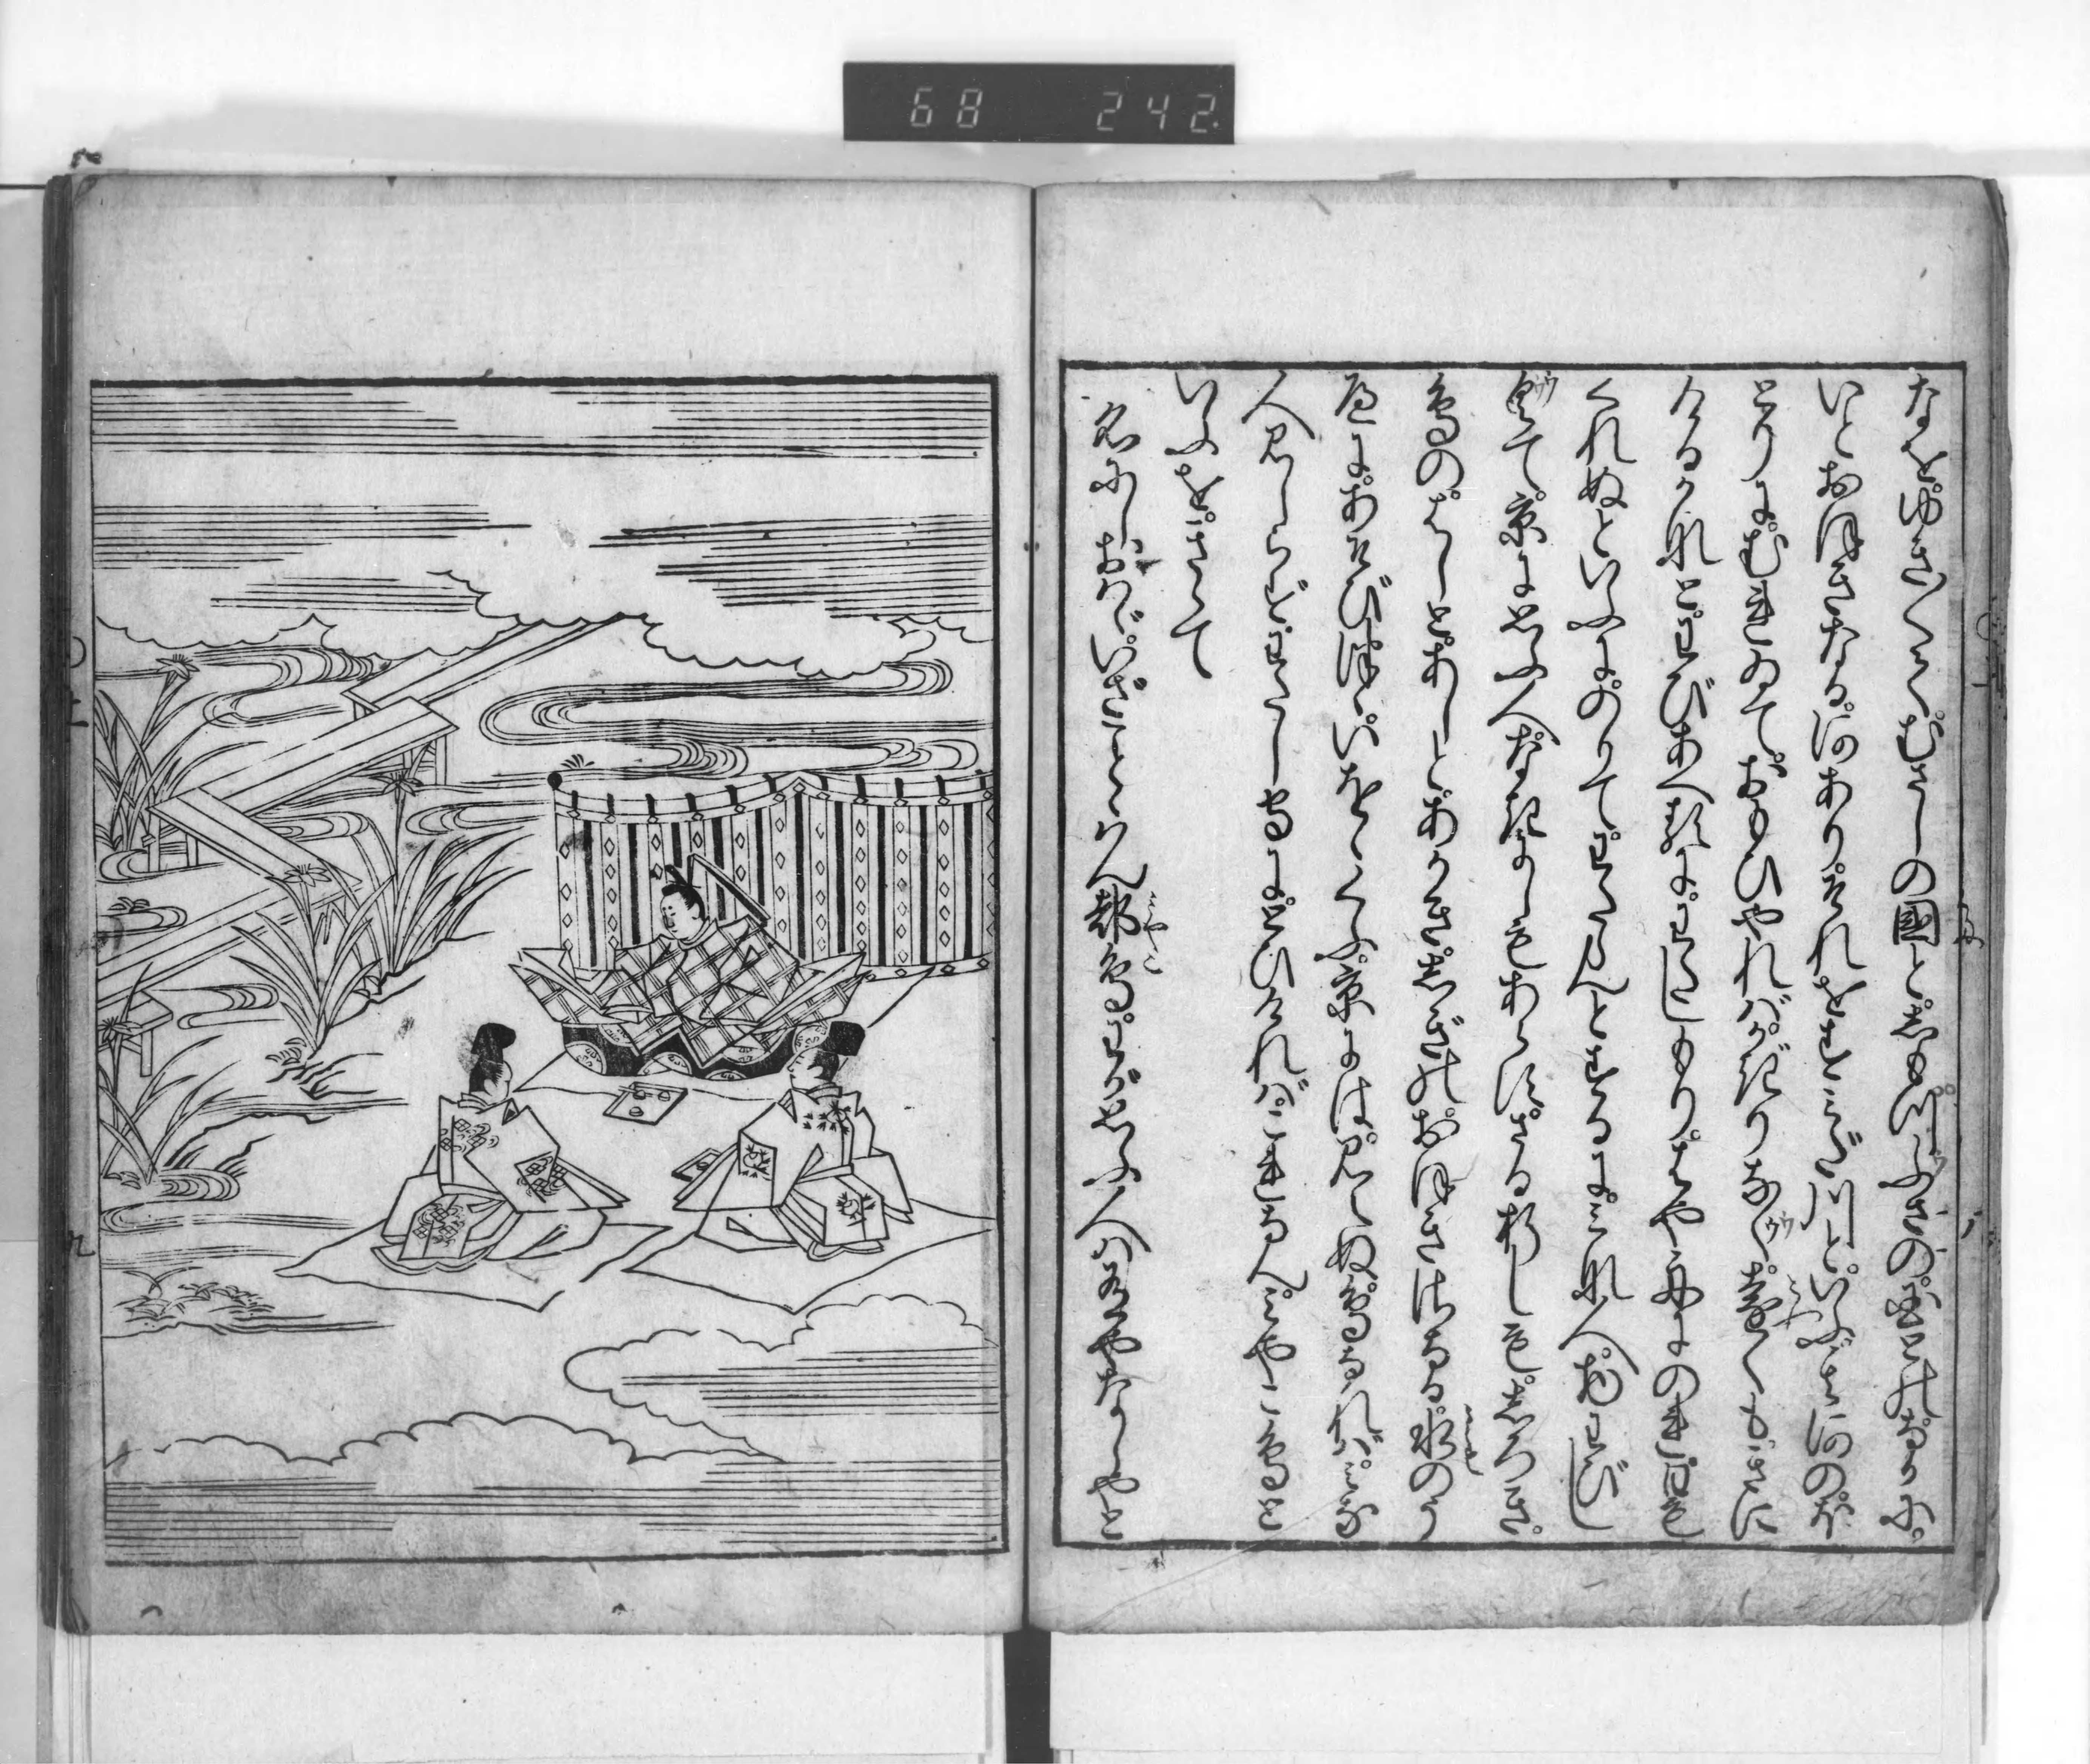 68 242.
なをゆき〱て。むさしの国と。しもつふさの国との中に。
いとおほきなる。河あり。それをすみだ川と。いふ。その河のほ
とりに。むれゐて。おもひやれば。かぎりなく。遠くもきに
けるかなと。わびあへるに。わたしもり。はや。ふねにのれ。日も
くれぬといふに。のりて。わたらんとするに。みな人。物わびし
くて。京におもふ人。なきにしもあらず。さるおりしも。しろき
鳥の。はしと。あしとあかき。しぎの。おほきさなる。水のう
へに。あそびつゝ。いをゝくふ。京には。見えぬ。鳥なれば。みな
人見しらず。わたしもりに。とひければ。これなん。みやこ鳥と
いふを。きゝて
名にしおはゞ。いざことゝはん都鳥。わがおもふ人は。ありやなしやと